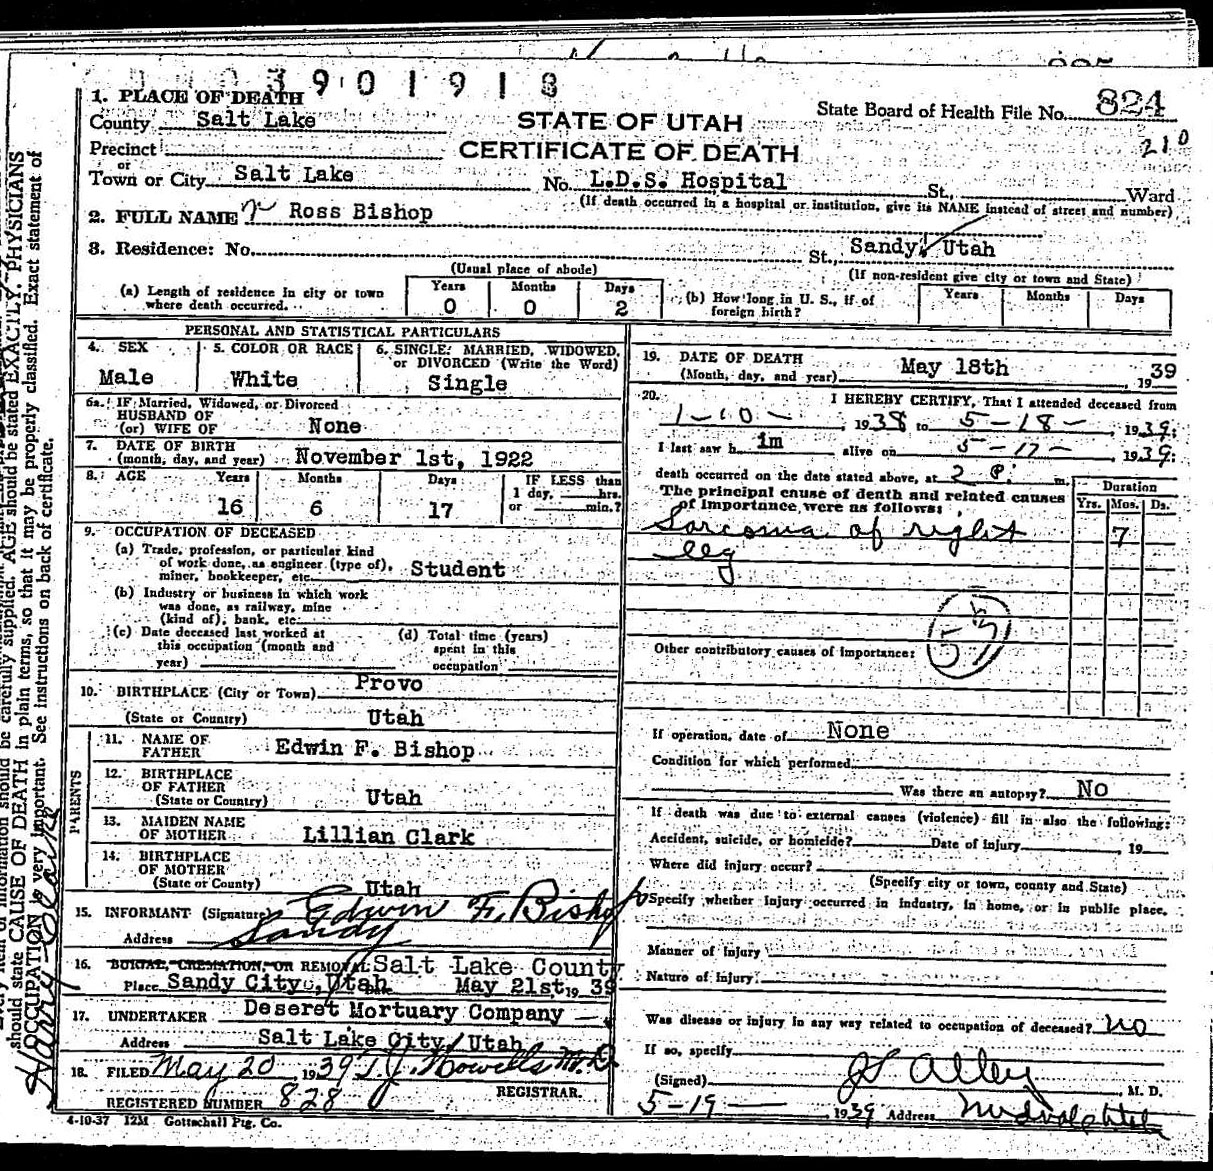 3901918
1. PLACE OF DEATH
County Salt Lake
STATE OF UTAH
State Board of Health File No. 824
210
Precinct
or
CERTIFICATE OF DEATH
Town or City Salt Lake No. L.D.S. Hospital St., Ward
(If death occurred in a hospital or institution, give its NAME instead of street and number)
2. FULL NAME Ross Bishop
3. Residence: No. St., Sandy, Utah
(Usual place of abode)
(If non-resident give city or town and State)
(a) Length of residence in city or town where death occurred.
Years Months Days
0 0 2
(b) How long in U. S., if of foreign birth?
Years Months Days
PERSONAL AND STATISTICAL PARTICULARS
4. SEX
Male
5. COLOR OR RACE
White
6. SINGLE, MARRIED, WIDOWED, or DIVORCED (Write the Word)
Single
6a. IF Married, Widowed, or Divorced
HUSBAND OF
(or) WIFE OF None
7. DATE OF BIRTH
(month, day, and year) November 1st, 1922
8. AGE Years Months Days IF LESS than
1 day, hrs.
or min.?
16 6 17
9. OCCUPATION OF DECEASED
(a) Trade, profession, or particular kind
of work done, as engineer (type of),
miner, bookkeeper, etc. Student
(b) Industry or business in which work
was done, as railway, mine
(kind of), bank, etc.
(c) Date deceased last worked at
this occupation (month and
year)
(d) Total time (years)
spent in this
occupation
10. BIRTHPLACE (City or Town) Provo
(State or Country) Utah
PARENTS
11. NAME OF
FATHER Edwin F. Bishop
12. BIRTHPLACE
OF FATHER
(State or Country) Utah
13. MAIDEN NAME
OF MOTHER Lillian Clark
14. BIRTHPLACE
OF MOTHER
(State or County) Utah
15. INFORMANT (Signature) Edwin F. Bishop
Address Sandy
16. BURIAL, CREMATION, OR REMOVAL Salt Lake County
Place Sandy City, Utah Date May 21st, 1939
17. UNDERTAKER Deseret Mortuary Company
Address Salt Lake City, Utah
18. FILED May 20 1939 T.J. Howells M.D.
REGISTRAR.
REGISTERED NUMBER 828
4-10-37 12M Gottschall Ptg. Co.
19. DATE OF DEATH
(Month, day, and year) May 18th, 1939
20. I HEREBY CERTIFY, That I attended deceased from
1-10-, 1938 to 5-18-, 1939;
I last saw h im alive on 5-17-, 1939;
death occurred on the date stated above, at 2 P. m.
The principal cause of death and related causes
of importance were as follows:
Duration
Yrs. Mos. Ds.
Sarcoma of right 7
leg
Other contributory causes of importance:
If operation, date of None
Condition for which performed
Was there an autopsy? No
If death was due to external causes (violence) fill in also the following:
Accident, suicide, or homicide? Date of injury , 19
Where did injury occur?
(Specify city or town, county and State)
Specify whether injury occurred in industry, in home, or in public place.
Manner of Injury
Nature of injury
Was disease or injury in any way related to occupation of deceased? no
If so, specify
(Signed) Alley M. D.
5-19- 1939 Address Midvale Utah
should state CAUSE OF DEATH in plain terms, so that it may be properly classified. Exact statement of
OCCUPATION is very important. See instructions on back of certificate.